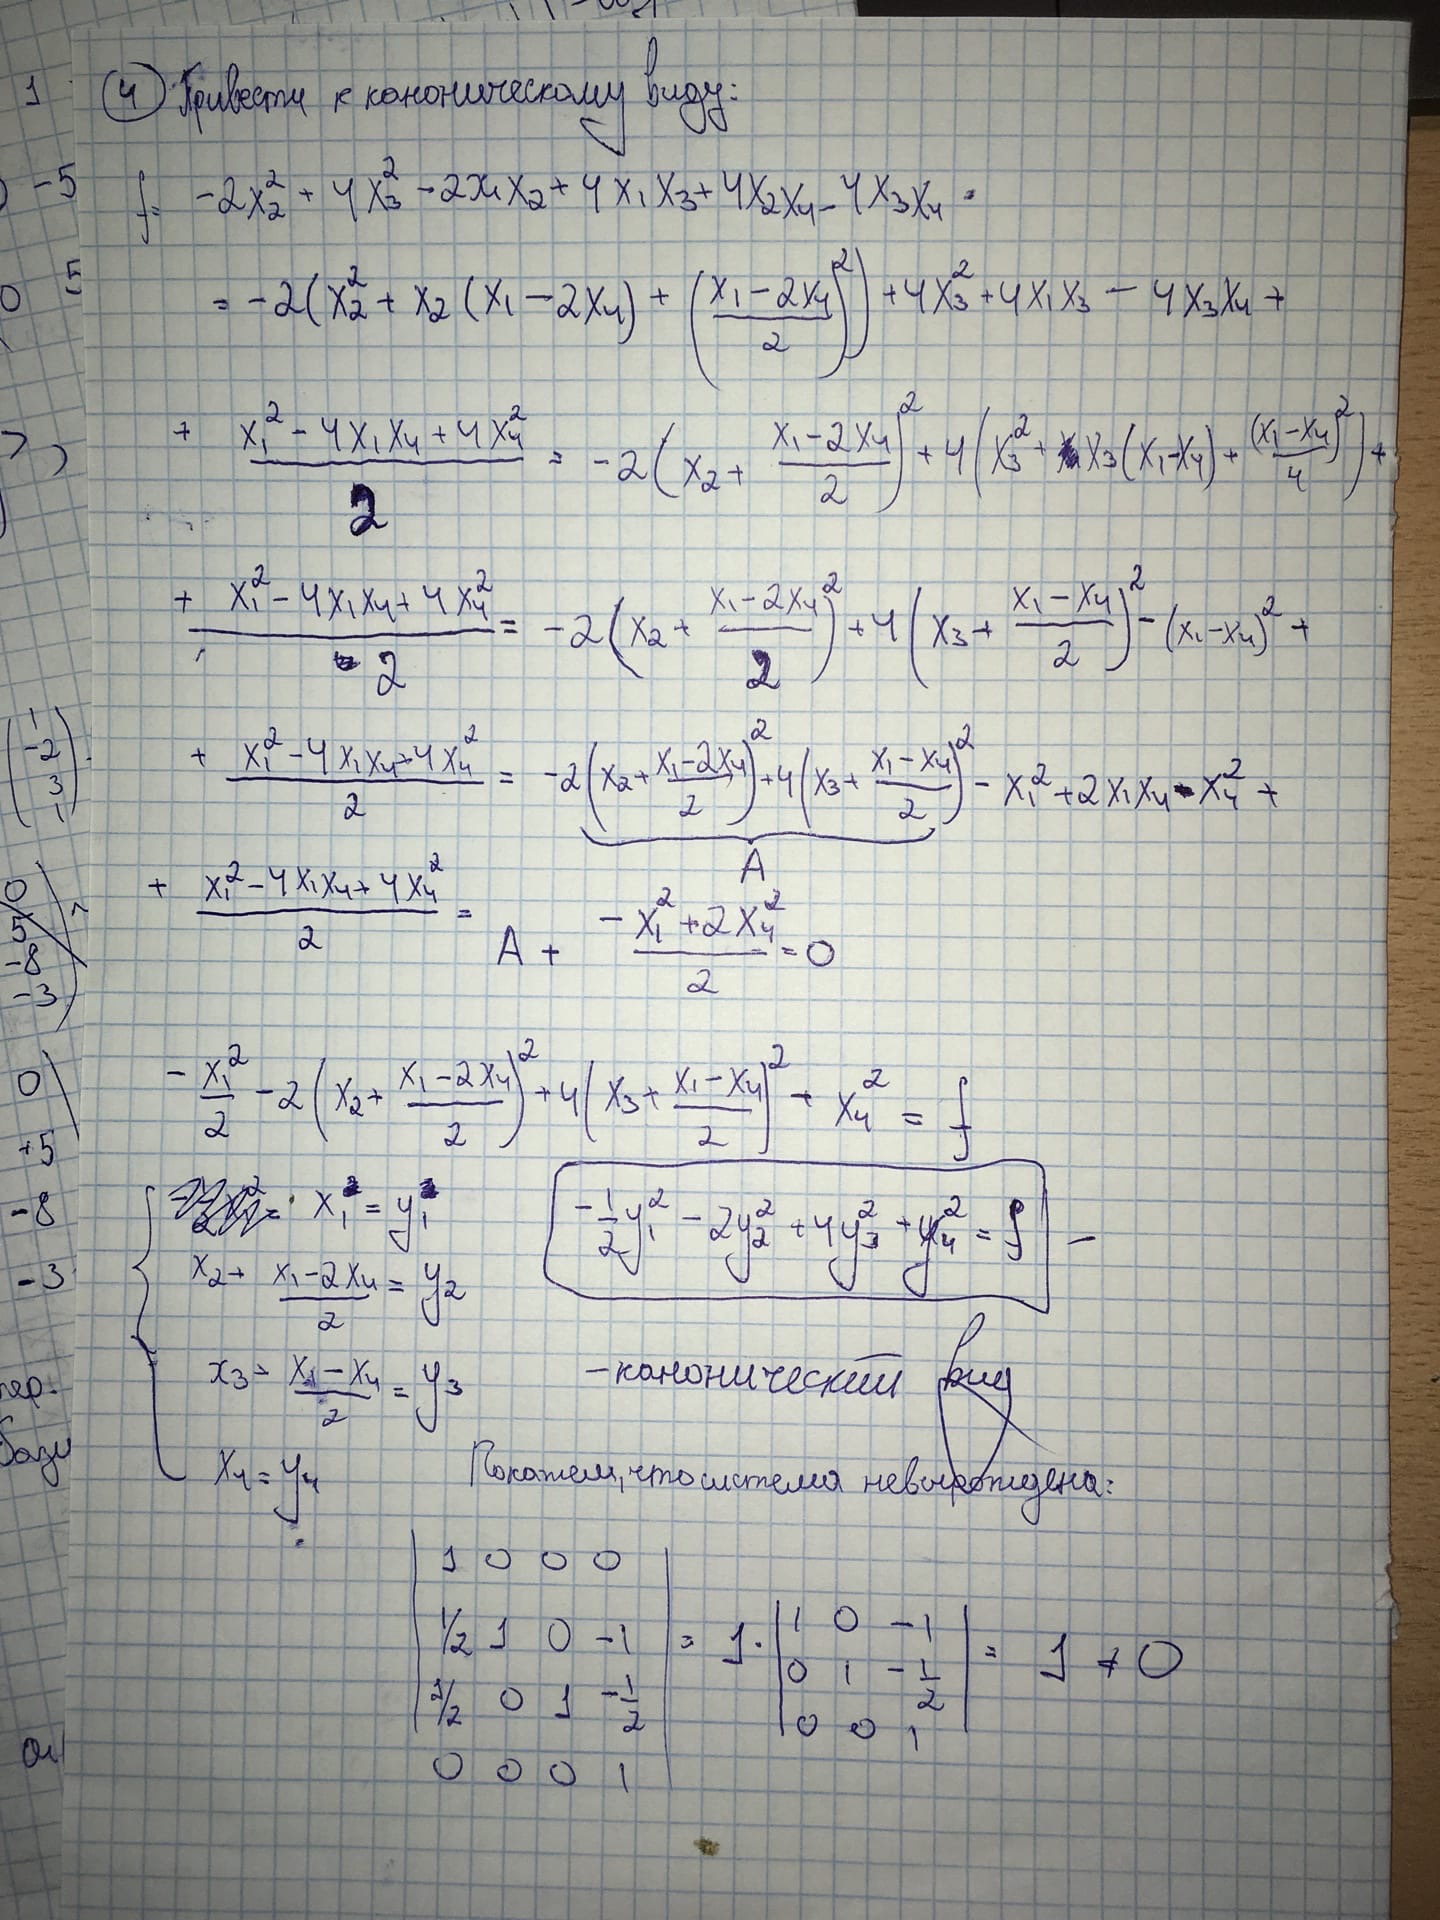 ④ Привести к каноническому виду:
f = -2x₂² + 4x₃² - 2x₁x₂ + 4x₁x₃ + 4x₂x₄ - 4x₃x₄ =
= -2(x₂² + x₂(x₁ - 2x₄) + ((x₁ - 2x₄)/2)²) + 4x₃² + 4x₁x₃ - 4x₃x₄ +
+ (x₁² - 4x₁x₄ + 4x₄²)/2 = -2(x₂ + (x₁ - 2x₄)/2)² + 4(x₃² + x₃(x₁ - x₄) + (x₁ - x₄)²/4) +
+ (x₁² - 4x₁x₄ + 4x₄²)/2 = -2(x₂ + (x₁ - 2x₄)/2)² + 4(x₃ + (x₁ - x₄)/2)² - (x₁ - x₄)² +
+ (x₁² - 4x₁x₄ + 4x₄²)/2 = -2(x₂ + (x₁ - 2x₄)/2)² + 4(x₃ + (x₁ - x₄)/2)² - x₁² + 2x₁x₄ - x₄² +
A
+ (x₁² - 4x₁x₄ + 4x₄²)/2 = A + (-x₁² + 2x₄²)/2 = 0
-x₁²/2 - 2(x₂ + (x₁ - 2x₄)/2)² + 4(x₃ + (x₁ - x₄)/2)² + x₄² = f
x₁ = y₁
-1/2 y₁² - 2y₂² + 4y₃² + y₄² = f -
x₂ + (x₁ - 2x₄)/2 = y₂
x₃ + (x₁ - x₄)/2 = y₃
- канонический вид
x₄ = y₄
Покажем, что система невырождена:
|1 0 0 0|
|1/2 1 0 -1| = 1 · |1 0 -1| = 1 ≠ 0
|1/2 0 1 -1/2| |0 1 -1/2|
|0 0 0 1| |0 0 1|
1
-5
0 5
1
-2
3
1
0
5
-8
-3
0
+5
-8
-3